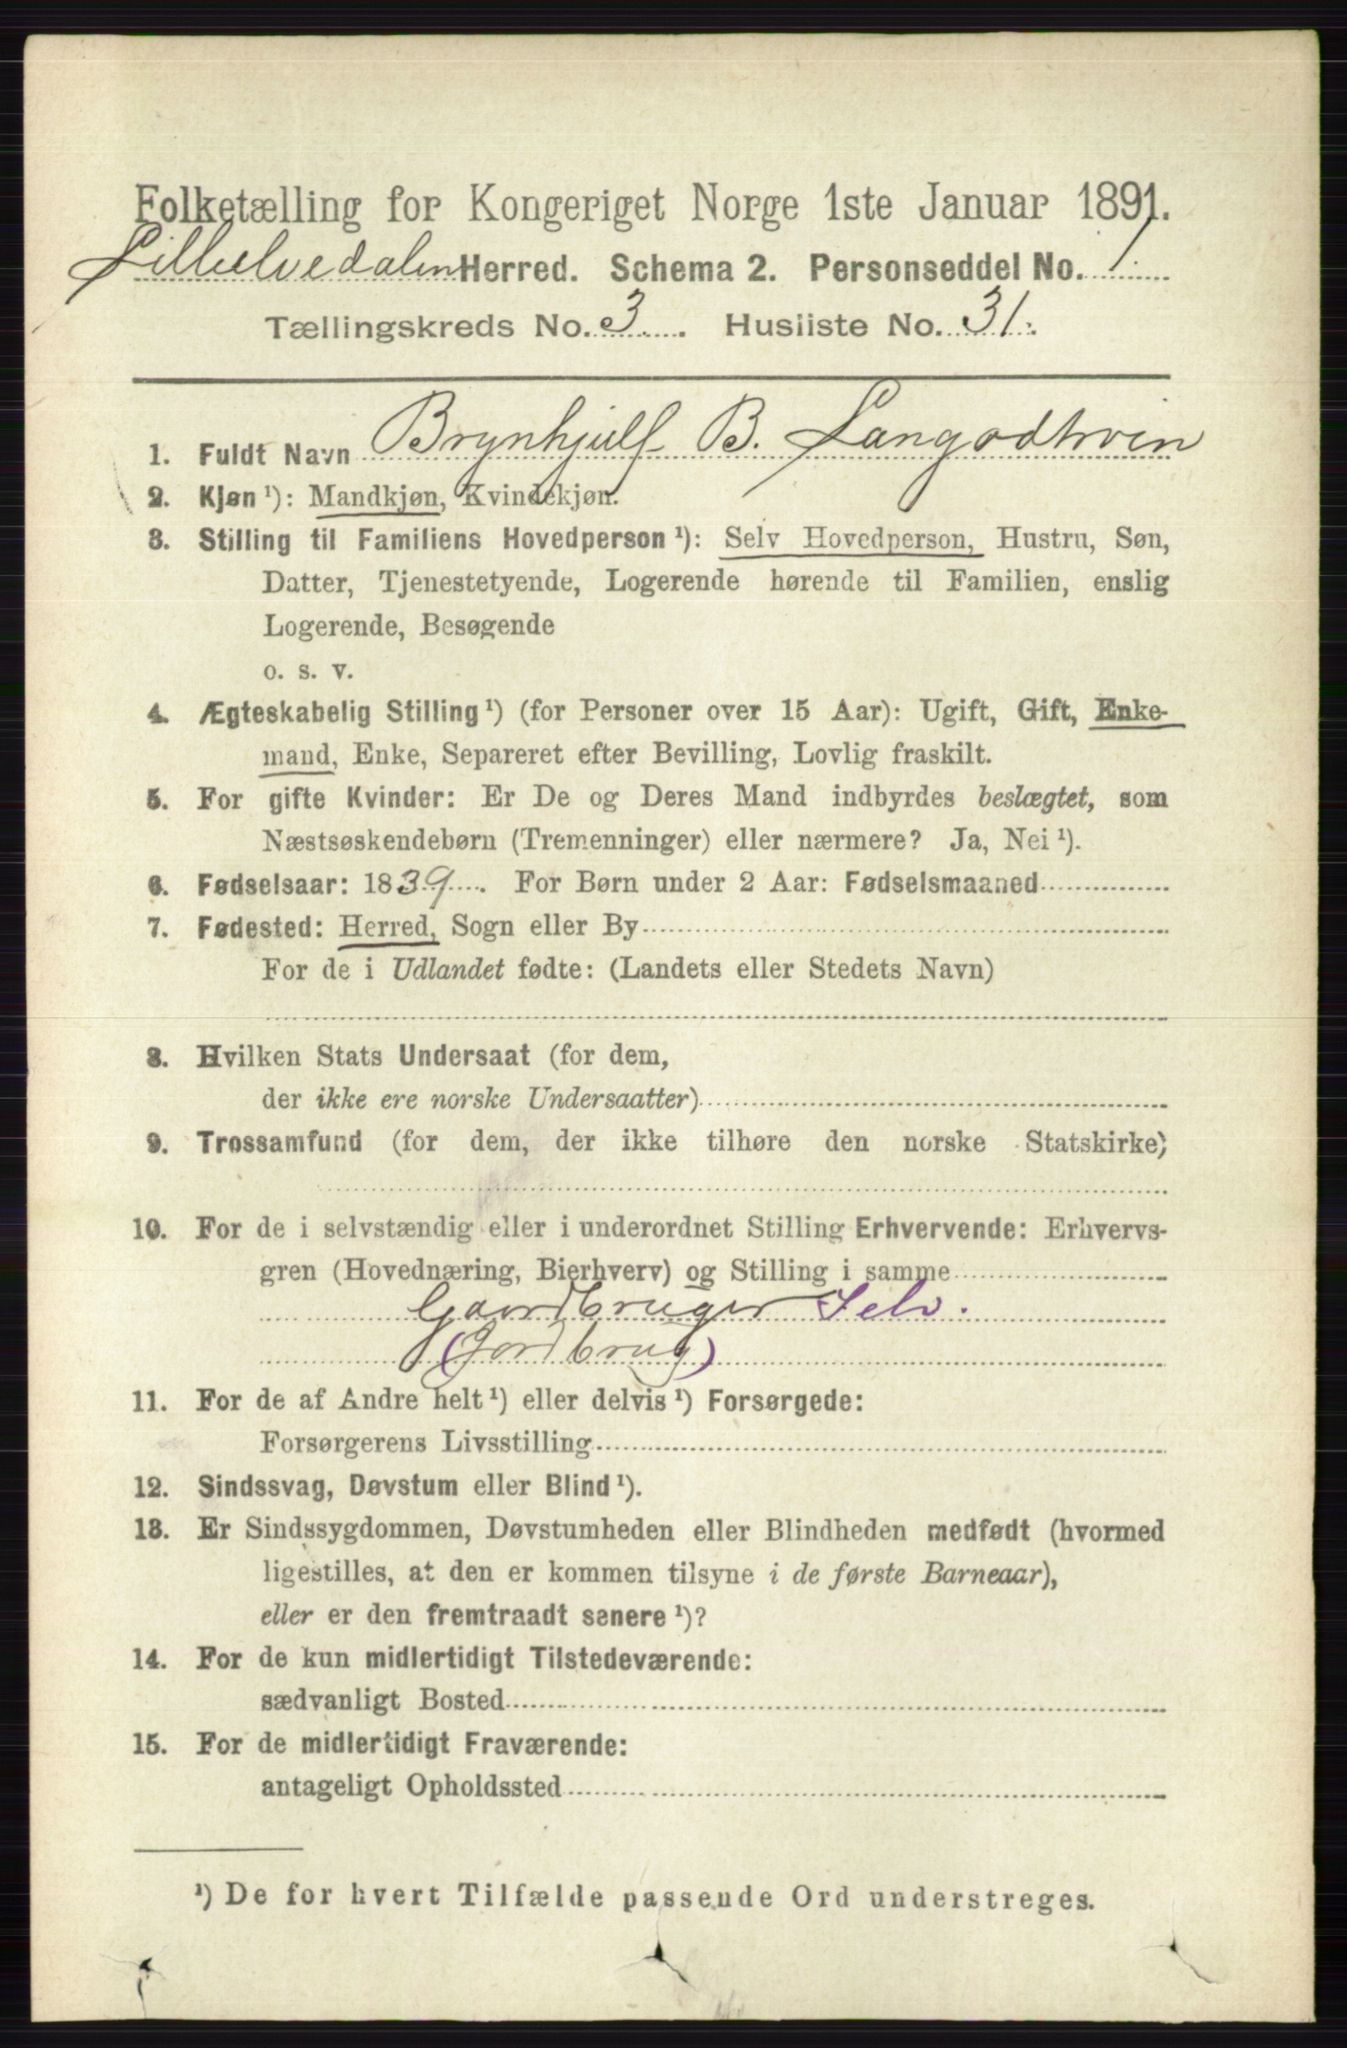 Folketælling for Kongeriget Norge 1ste Januar 1891.
Lilleelvedalen Herred. Schema 2. Personseddel No. 1.
Tællingskreds No. 3. Husliste No. 31.
1. Fuldt Navn Brynhjulf B. Langodtrøen
2. Kjøn ¹): Mandkjøn, Kvindekjøn.
3. Stilling til Familiens Hovedperson ¹): Selv Hovedperson, Hustru, Søn,
Datter, Tjenestetyende, Logerende hørende til Familien, enslig
Logerende, Besøgende
o. s. v.
4. Ægteskabelig Stilling ¹) (for Personer over 15 Aar): Ugift, Gift, Enke-
mand, Enke, Separeret efter Bevilling, Lovlig fraskilt.
5. For gifte Kvinder: Er De og Deres Mand indbyrdes beslægtet, som
Næstsøskendebørn (Tremenninger) eller nærmere? Ja, Nei ¹).
6. Fødselsaar: 1839. For Børn under 2 Aar: Fødselsmaaned
7. Fødested: Herred, Sogn eller By
For de i Udlandet fødte: (Landets eller Stedets Navn)
8. Hvilken Stats Undersaat (for dem,
der ikke ere norske Undersaatter)
9. Trossamfund (for dem, der ikke tilhøre den norske Statskirke)
10. For de i selvstændig eller i underordnet Stilling Erhvervende: Erhvervs-
gren (Hovednæring, Bierhverv) og Stilling i samme
Gaardbruger Selv.
(Jordbrug)
11. For de af Andre helt ¹) eller delvis ¹) Forsørgede:
Forsørgerens Livsstilling
12. Sindssvag, Døvstum eller Blind ¹).
13. Er Sindssygdommen, Døvstumheden eller Blindheden medfødt (hvormed
ligestilles, at den er kommen tilsyne i de første Barneaar),
eller er den fremtraadt senere ¹)?
14. For de kun midlertidigt Tilstedeværende:
sædvanligt Bosted
15. For de midlertidigt Fraværende:
antageligt Opholdssted
¹) De for hvert Tilfælde passende Ord understreges.